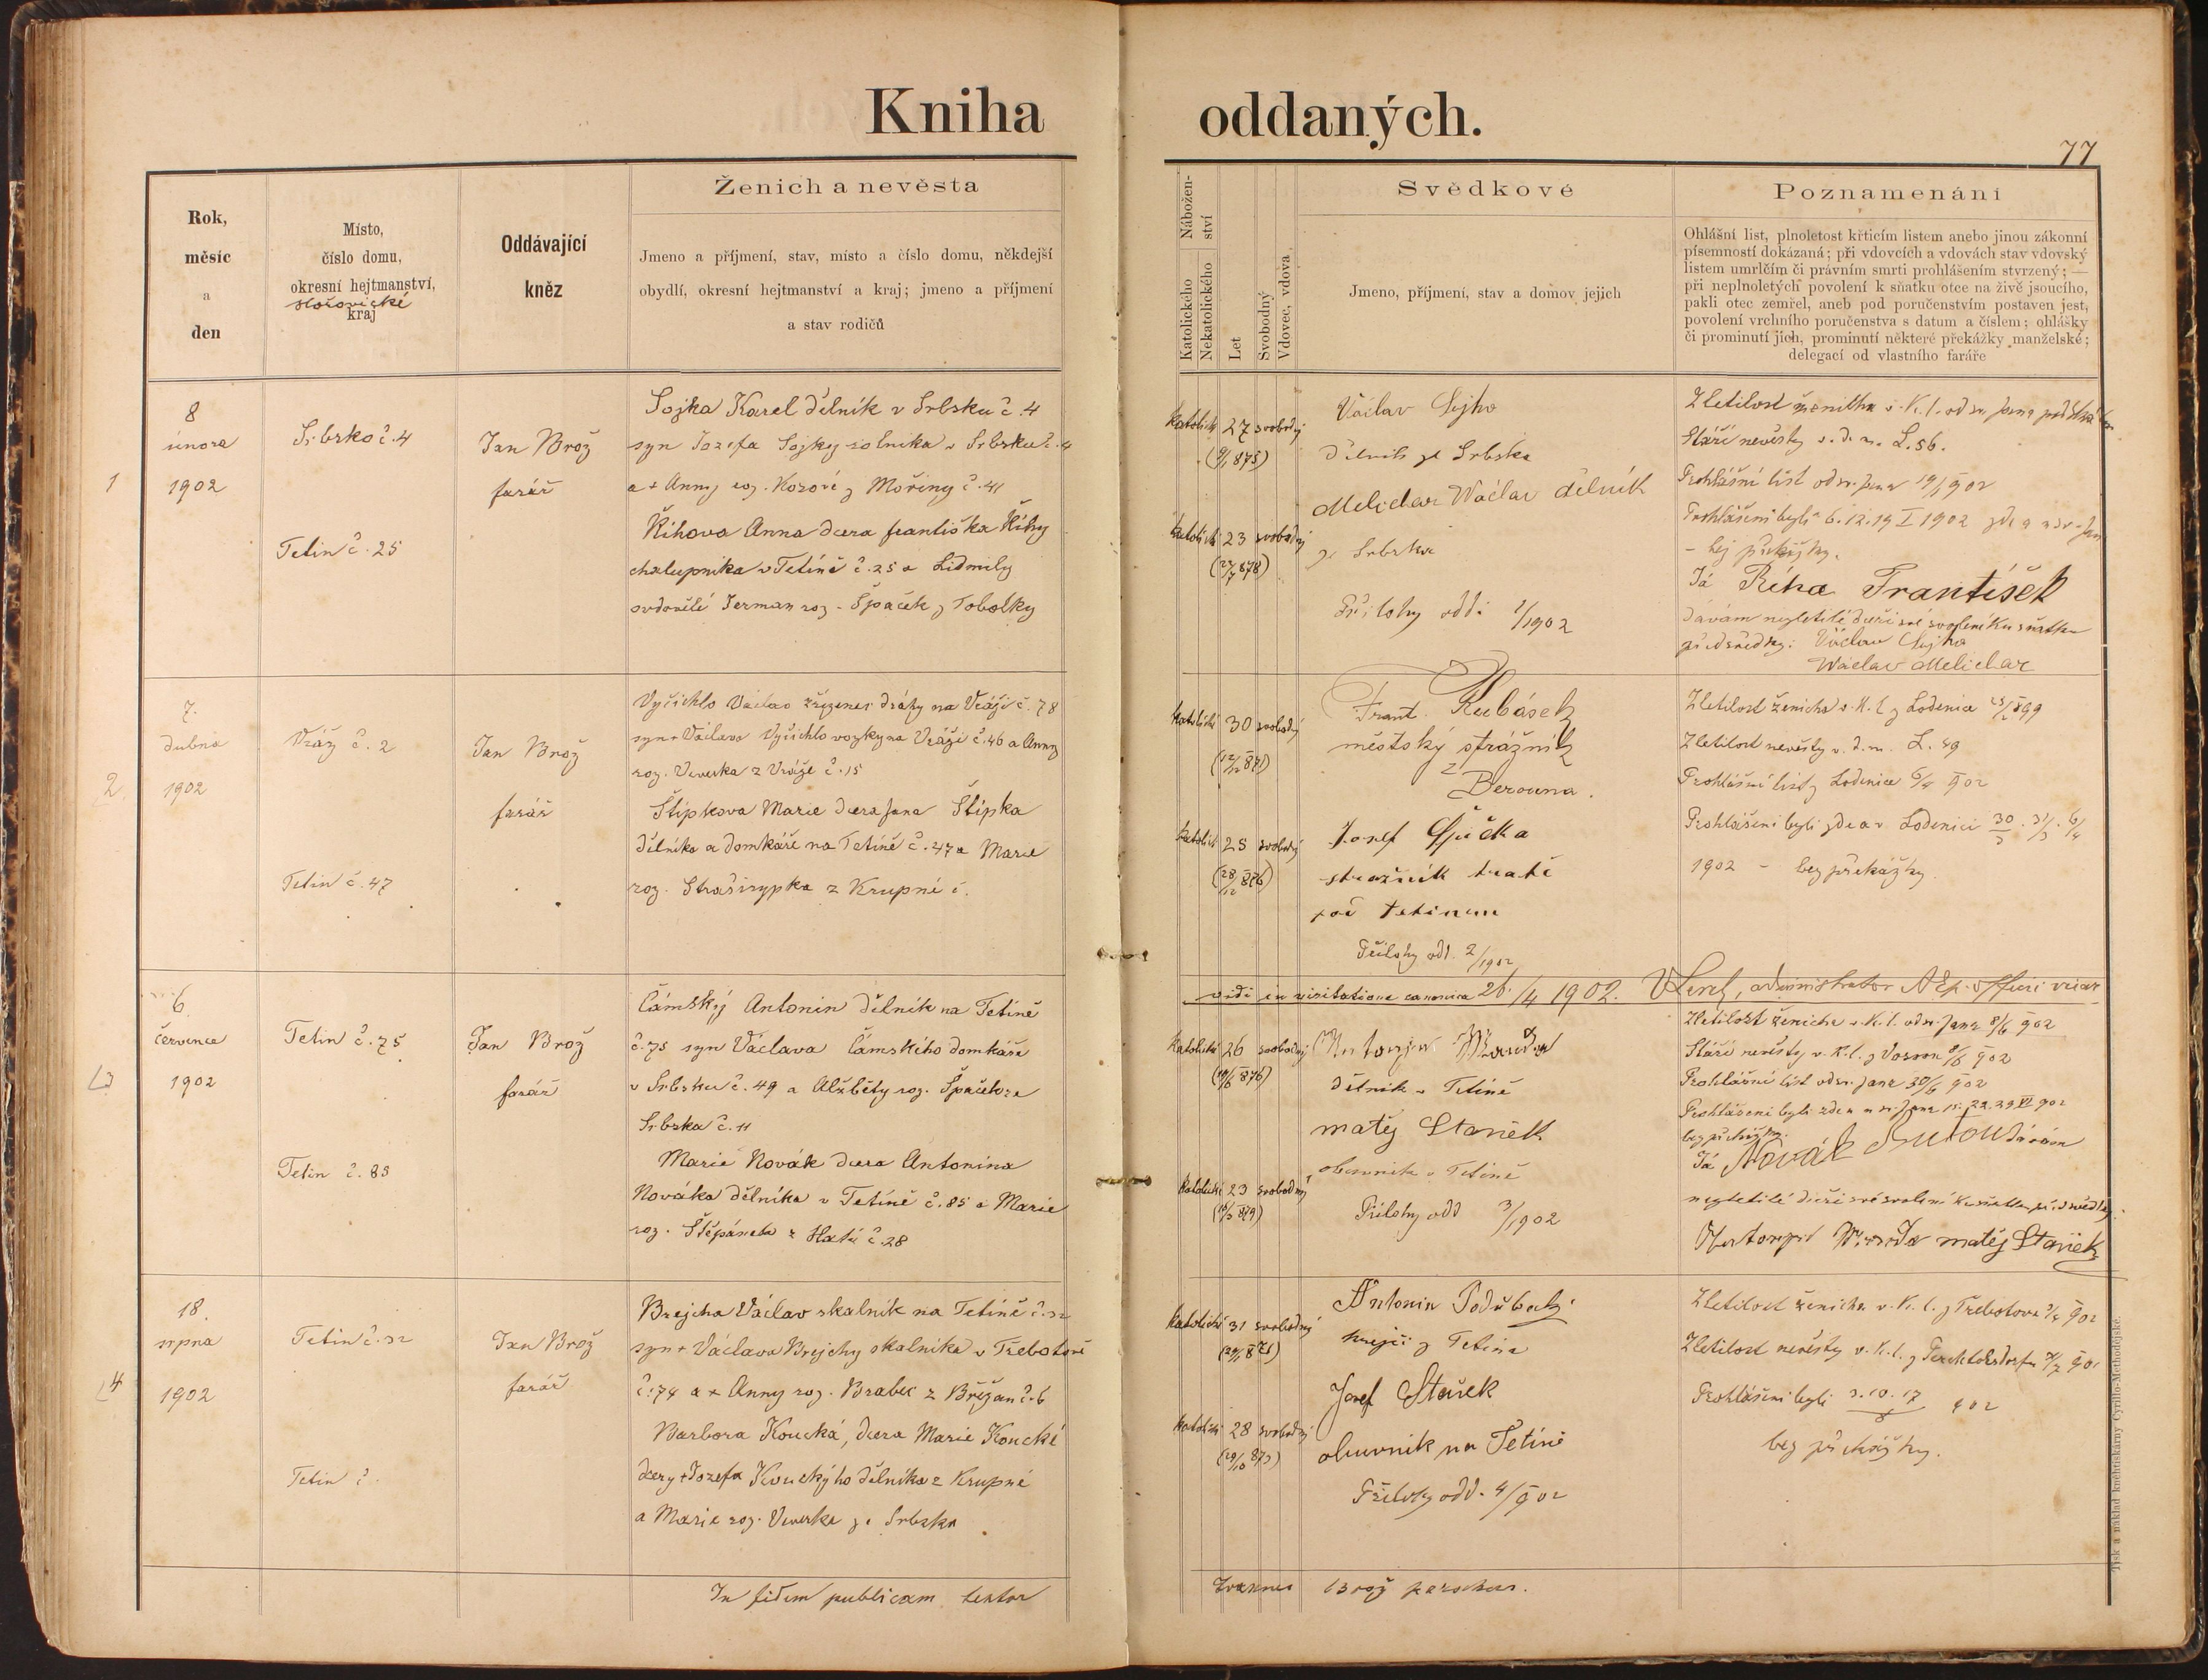 Kniha oddaných.
77
Rok,
měsíc
a
den
Místo,
číslo domu,
okresní hejtmanství,
Hořovické
kraj
Oddávající
kněz
Ženich a nevěsta
Jmeno a příjmení, stav, místo a číslo domu, někdejší
obydlí, okresní hejtmanství a kraj; jmeno a příjmení
a stav rodičů
Nábožen-
ství
Katolického
Nekatolického
Let
Svobodný
Vdovec, vdova
Svědkové
Jmeno, příjmení, stav a domov jejich
Poznamenání
Ohlášní list, plnoletost křticím listem anebo jinou zákonní
písemností dokázaná; při vdovcích a vdovách stav vdovský
listem umrlčím či právním smrti prohlášením stvrzený; —
při neplnoletých povolení k sňatku otce na živě jsoucího,
pakli otec zemřel, aneb pod poručenstvím postaven jest,
povolení vrchního poručenstva s datum a číslem; ohlášky
či prominutí jich, prominutí některé překážky manželské;
delegací od vlastního faráře
1
8
února
1902
Srbsko č. 4
Tetin č. 25
Jan Brož
farář
Sojka Karel dělník v Srbsku č. 4
syn Jozefa Sojky rolníka v Srbsku č. 4
a + Anny roz. Kozové z Mořiny č. 41
Říhova Anna dcera Františka Říhy
chalupníka v Tetíně č. 25 a Lidmily
ovdovělé Jerman roz. Špaček z Tobolky
katolické 27 svobodný
(9/1 875)
katolické 23 svobodný
(27/7 878)
Václav Sejho
dělník ze Srbska
Melichar Václav dělník
ze Srbska
Přílohy odd. 1/1902
Zletilost ženicha v. K. l. od sv. Jana pod Skalou
Stáří nevěsty v. d. m. L. 56.
Prohlášní list od sv. Jana 19/1 902
Prohlášeni byli 6. 12. 19 I 1902 zde a u sv. Jan
- bez překážky.
Já Říha František
dávám nezletilé dceři své svolení ku sňatku
před svědky: Václav Sejho
Václav Melichar
2
7.
dubna
1902
Vráž č. 2
Tetin č. 47
Jan Brož
farář
Vyčichlo Václav zřízenec dráhy na Vráži č. 78
syn + Václava Vyčichlo vozky na Vráži č. 46 a Anny
roz. Veverka z Vráže č. 15
Štípkova Marie dcera Jana Štípka
dělníka a domkáře na Tetíně č. 47 a Marie
roz. Straširypka z Krupné č.
katolické 30 svobodný
(12/12 871)
katolické 25 svobodný
(28/12 876)
Frant. Kubásek
městský strážník
z
Berouna.
Josef Špička
stražník tratě
pod Tetinem
Přílohy odd. 2/1902
Zletilost ženicha v. K. l. z Loděnice 899
Zletilost nevěsty v. d. m. L. 49
Prohlášní list z Loděnice 6/4 902
Prohlášeni byli zde a v Loděnici 30/3. 31/3. 6/4
1902 - bez překážky.
vidi in visitatione canonica 26./4 1902. administrator
3
6
července
1902
Tetin č. 75
Tetin č. 85
Jan Brož
farář
Čámský Antonin dělník na Tetíně
č. 75 syn Václava Čámského domkáře
v Srbsku č. 49 a Alžběty roz. Špaček ze
Srbska č. 11
Marie Novák dcera Antonína
Nováka dělníka v Tetíně č. 85 a Marie
roz. Štěpánek z Hatí č. 28
katolické 26 svobodný
(10/6 876)
katolické 23 svobodný
Antonin
dělník v Tetíně
Matěj Stanek
obuvník v Tetíně
Přílohy odd 3/1902
Zletilost ženicha v. K. l. od sv. Jana 8/6 902
Stáří nevěsty v. K. l. z 8/6 902
Prohlášní list od sv. Jana 30/6 902
Prohlášeni byli zde a u sv. Jana 15. 22. 29 VI 902
bez překážky.
Já Novák Anton dávám
nezletilé dceři své svolení ku sňatku před svědky:
Matěj Stanek
4
18.
srpna
1902
Tetin č. 32
Tetin č.
Jan Brož
farář
Brejcha Václav skalník na Tetíně č. 32
syn + Václava Brejchy skalníka v Třebotově
č. 74 a + Anny roz. Brabec z Břežan č. 6
Barbora Koucká, dcera Marie Koucké
dcery + Jozefa Kouckýho dělníka z Krupné
a Marie roz. Veverka ze Srbska
katolické 31 svobodný
katolické 28 svobodný
Antonin Poddubecký
krejčí z Tetína
Josef Stařek
obuvník na Tetíně
Přílohy odd. 4/902
Zletilost ženicha v. K. l. z Třebotova 902
Zletilost nevěsty v. K. l. z Perchtoldsdorfu
Prohlášeni byli 3. 10. 17/8 902
bez překážky.
In fidem publicam testor Joannes Brož parochus.
Tisk a náklad knihtiskárny Cyrillo-Methodějské.